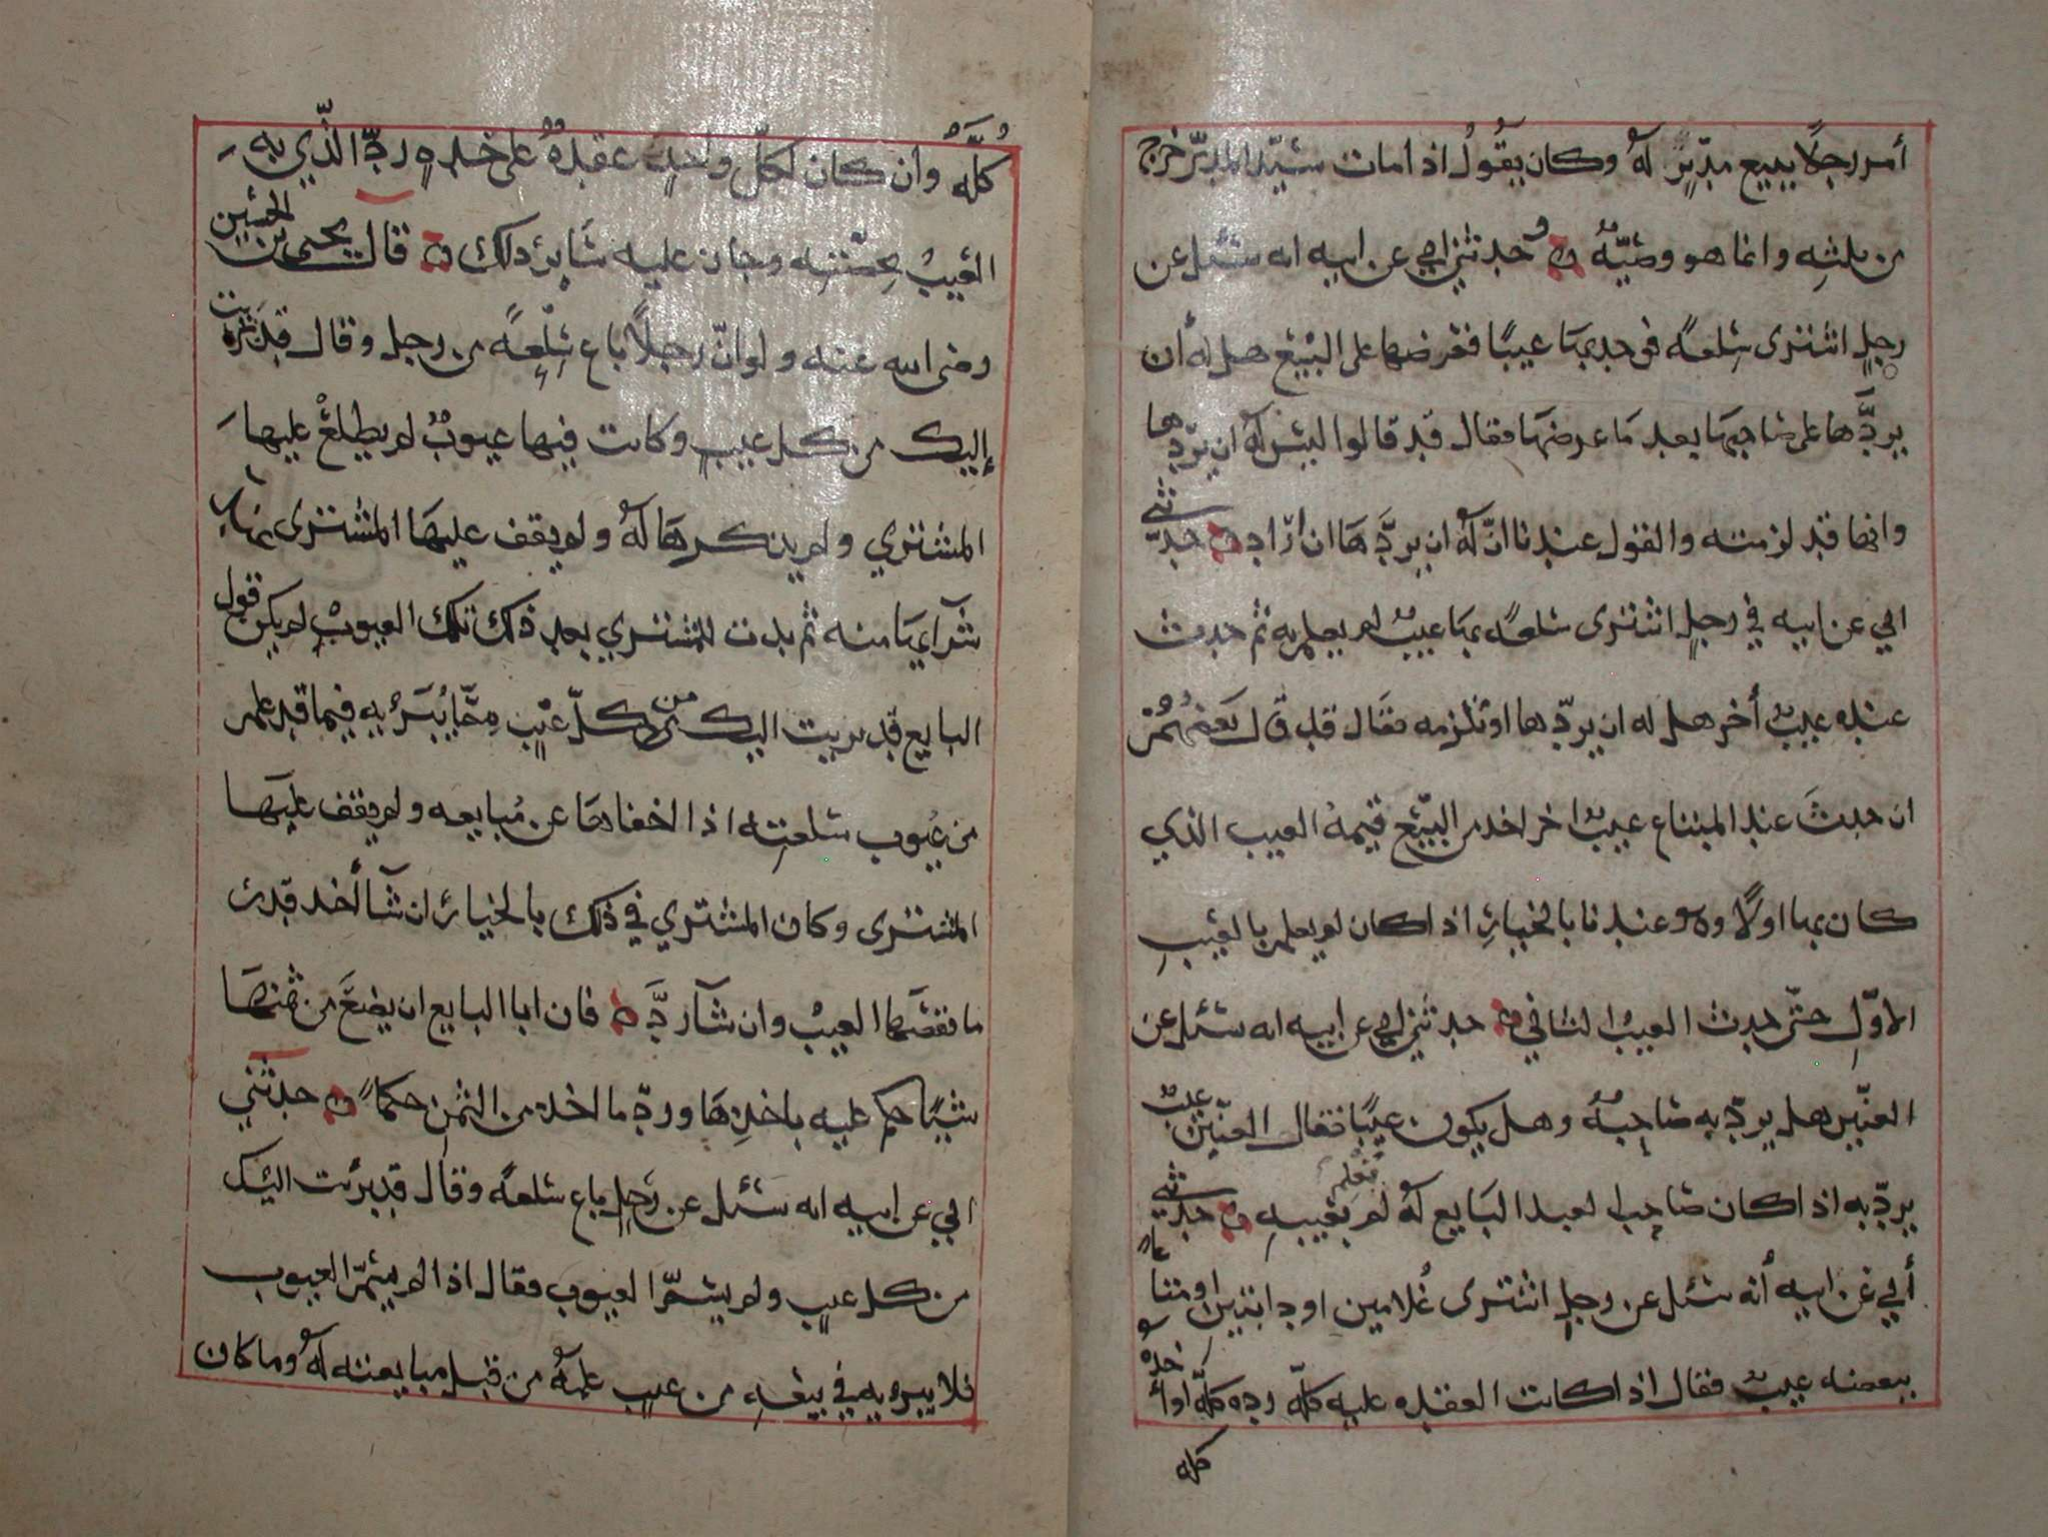 أمر رجلًا ببيع مدبّرٍ لهُ وكان يقُولُ اذا مات سيّد المدبّر خرج
من ثلثه وانما هو وصيّةٌ حدثني ابي عن ابيه انه سئل عن
رجلٍ اشترى سلعةً فوجد بها عيبًا فعرضها على البيع هل له أن
يردَّها على صاحبها بعد ما عرضها فقال قد قالوا ليس لهُ ان يردّها
وانها قد لزمته والقول عندنا انّ لهُ ان يردَّها ان ارّاد حدّثني
ابي عن ابيه في رجلٍ اشترى سلعةً بها عيبٌ لم يعلم به ثم حدث
عنده عيبٌ أخر هل له ان يردّها او تلزمه فقال قد قال بعضهُمُ
ان حدثَ عند المبتاع عيبٌ اخر اخذ من البيّع قيمة العيب الذي
كان بها اولًا وهو عندنا بالخيارِ اذا كان لم يعلم بالعيبِ
الاوّلِ حتّى حدث العيبُ الثاني حدثني ابي عن ابيه انه سئل عن
العنّين هل يردّ به صاحبهُ وهل يكون عيبًا فقال العنّين عيبٌ
يردّ به اذا كان صاحب العبد البايع لهُ لم يعلم بعيبهِ حدّثني
أبي عن ابيه أنه سئل عن رجلٍ اشترى غُلامين او دابتين او متاعًا
ببعضه عيبٌ فقال اذا كانت العقده عليه كلّه رده كلّه او أخذهُ
كله
كُلَّهُ وان كان لكلّ واحدٍ عقدةٌ على حدهٍ ردّ الّذي به
العيبُ بحصّتهِ وجاز عليه سَايرُ ذلك قال يحيى بن الحسين
رضى الله عنه ولو انّ رجلًا باع سِلْعةً من رجل وقال قد بريت
إليك من كل عيبٍ وكانت فيها عيوبٌ لم يطلعْ عليها
المشتري ولم يذكرها لهُ ولم يقف عليهَا المشترى عند
شرآيها منه ثم بدت للمشتري بعد ذلك تلك العيوبُ لم يكن قول
البايع قد بريت اليك من كلّ عيْبٍ مِمَّا يُبَرّيه فيما قد علم
من عيُوب سلعته اذا اخفاها عن مُبايعه ولم يقف عليها
المشترى وكان المشتري في ذلك بالخيار ان شآ أخذ قدر
ما نقصَها العيبُ وان شآ ردَّ فان ابا البايع ان يضعَ من ثمنها
شيئًا حكم عليه باخذِها وردّ ما اخذ من الثمن حكمًا حدثني
ابي عن ابيه انه سئل عن رجلٍ باع سلعةً وقال قد برئت اليك
من كل عيبٍ ولم يسمّ العيوب فقال اذا لم يسمّ العيوب
فلا يبريه في بيعهِ من عيبٍ علمهُ من قبل مبايعته لهُ وما كان